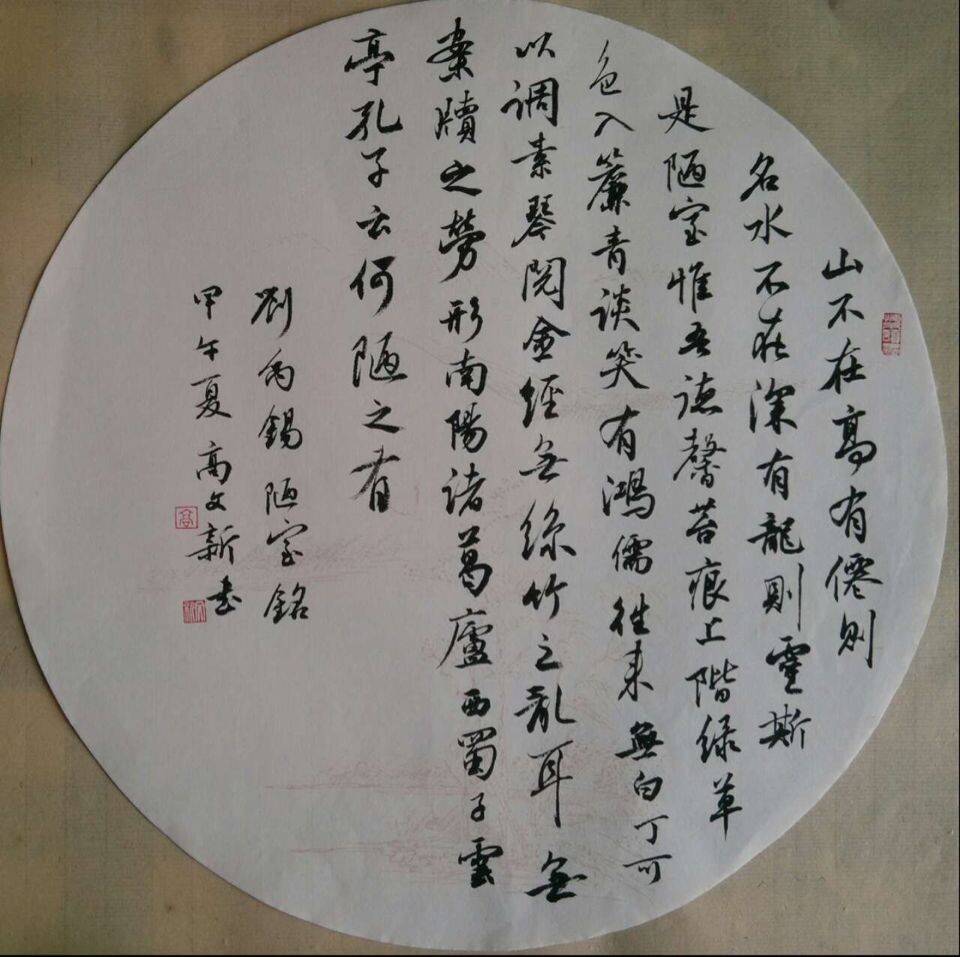 山不在高有僊則
名水不在深有龍則靈斯
是陋室惟吾德馨苔痕上階绿草
色入簾青談笑有鴻儒往来無白丁可
以调素琴閱金經無絲竹之亂耳無
案牘之勞形南陽诸葛廬西蜀子雲
亭孔子云何陋之有
劉禹錫陋室銘
甲午夏高文新书
高